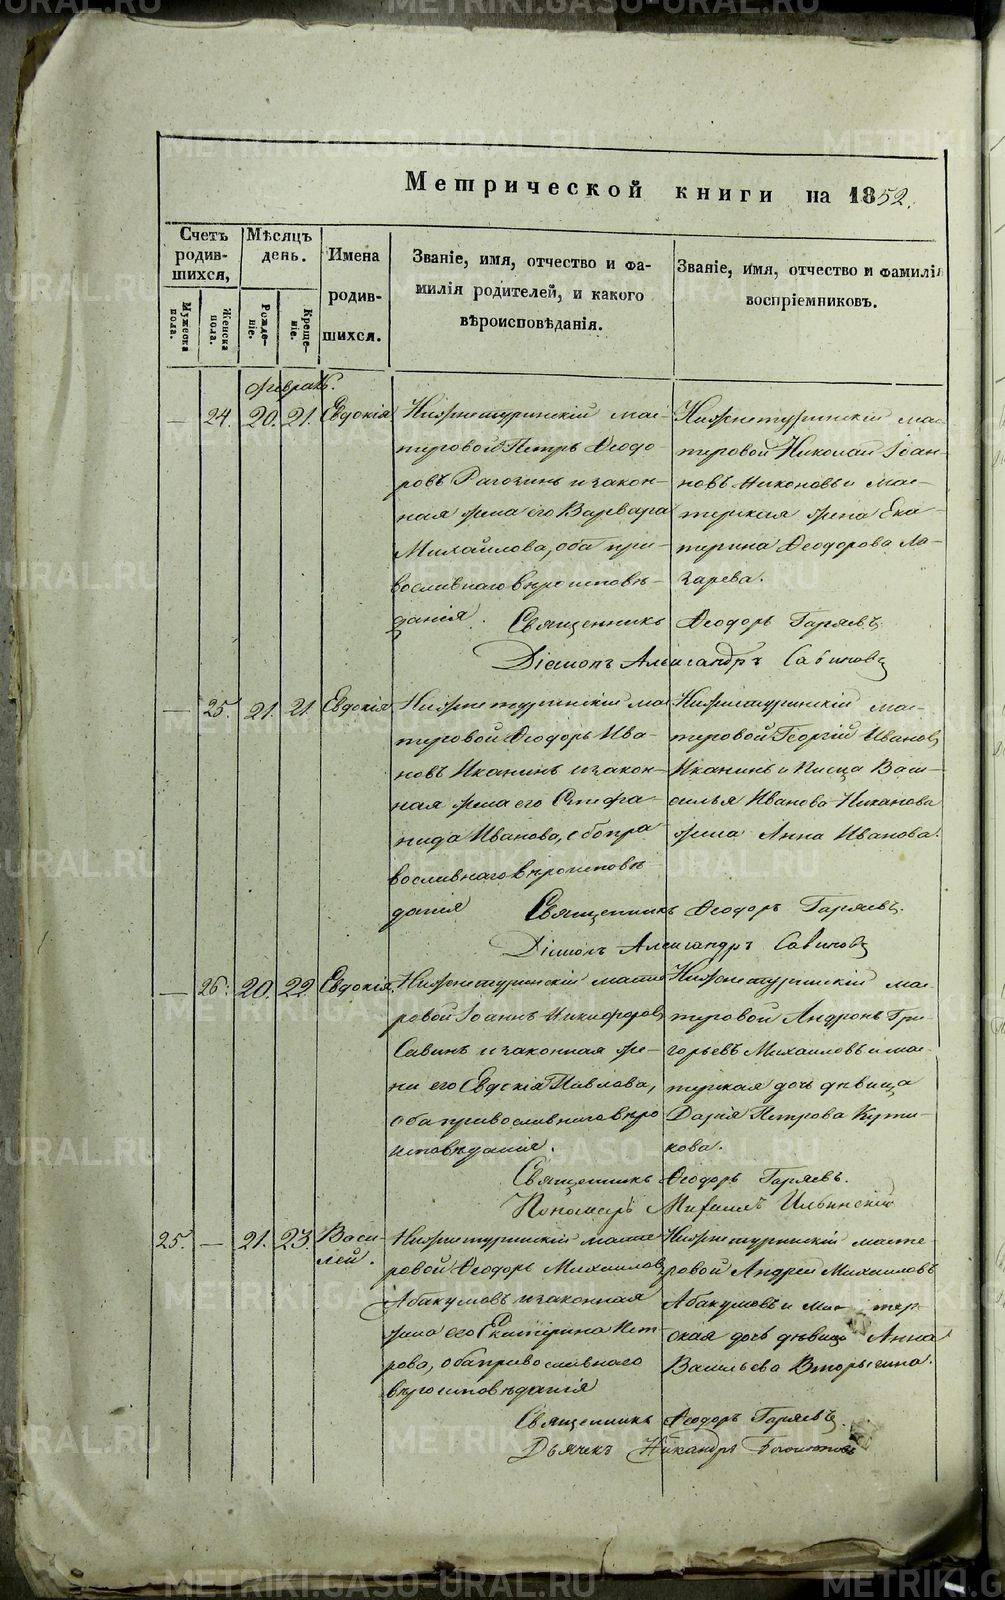 Метрической книги на 1852.
Счетъ родив-шихся,
Мѣсяцъ день.
Имена родив-шихся.
Званіе, имя, отчество и фа-
милія родителей, и какого
вѣроисповѣданія.
Званіе, имя, отчество и фамилія
воспріемниковъ.
Мужеска пола.
Женска пола.
Рожде-ніе.
Креще-ніе.
Февраль.
— 24. 20. 21. Евдокія
Нижнетуринскій мас-
теровой Петръ Ѳеодо-
ровъ Рагозинъ и закон-
ная жена его Варвара
Михайлова, оба пра-
вославнаго вѣроисповѣ-
данія.
Нижнетуринскій мас-
теровой Николай Іоан-
новъ Никоновъ и мас-
терская жена Ека-
терина Ѳеодорова Ла-
зарева.
Священникъ Ѳеодоръ Гаряевъ
Діаконъ Александръ Савиновъ
— 25. 21. 21. Евдокія
Нижнетуринскій мас
теровой Ѳеодоръ Ива-
новъ Иканинъ и закон-
ная жена его Стефа-
нида Иванова, оба пра
вославнаго вѣроисповѣ
данія
Нижнетуринскій мас-
теровой Георгій Ивановъ
Иканинъ и писца Васи-
силья Иванова Никанова
жена Анна Иванова.
Священникъ Ѳеодоръ Гаряевъ.
Діаконъ Александръ Савиновъ
— 26. 20. 22. Евдокія
Нижнетуринскій масте
ровой Іоаннъ Никифоровъ
Савинъ и законная же-
на его Евдокія Павлова,
оба православнаго вѣро
исповѣданія.
Нижнетуринскій мас-
теровой Андронъ Гри-
горьевъ Михаиловъ и мас-
терская дочь дѣвица
Дарія Петрова Кути-
кова.
Священникъ Ѳеодоръ Гаряевъ.
Пономарь Михаилъ Ильинскій
25. — 21. 23. Васи-
лей.
Нижнетуринскій масте
ровой Ѳеодоръ Михаиловъ
Абакумовъ и законная
жена его Екатерина Пет-
рова, оба православнаго
вѣроисповѣданія
Нижнетуринскій масте-
ровой Андрей Михаиловъ
Абакумовъ и мас тер-
ская дочь дѣвица Анна
Васильева Вторыгина.
Священникъ Ѳеодоръ Гаряевъ.
Дьячекъ Никандръ
METRIKI.GASO-URAL.RU